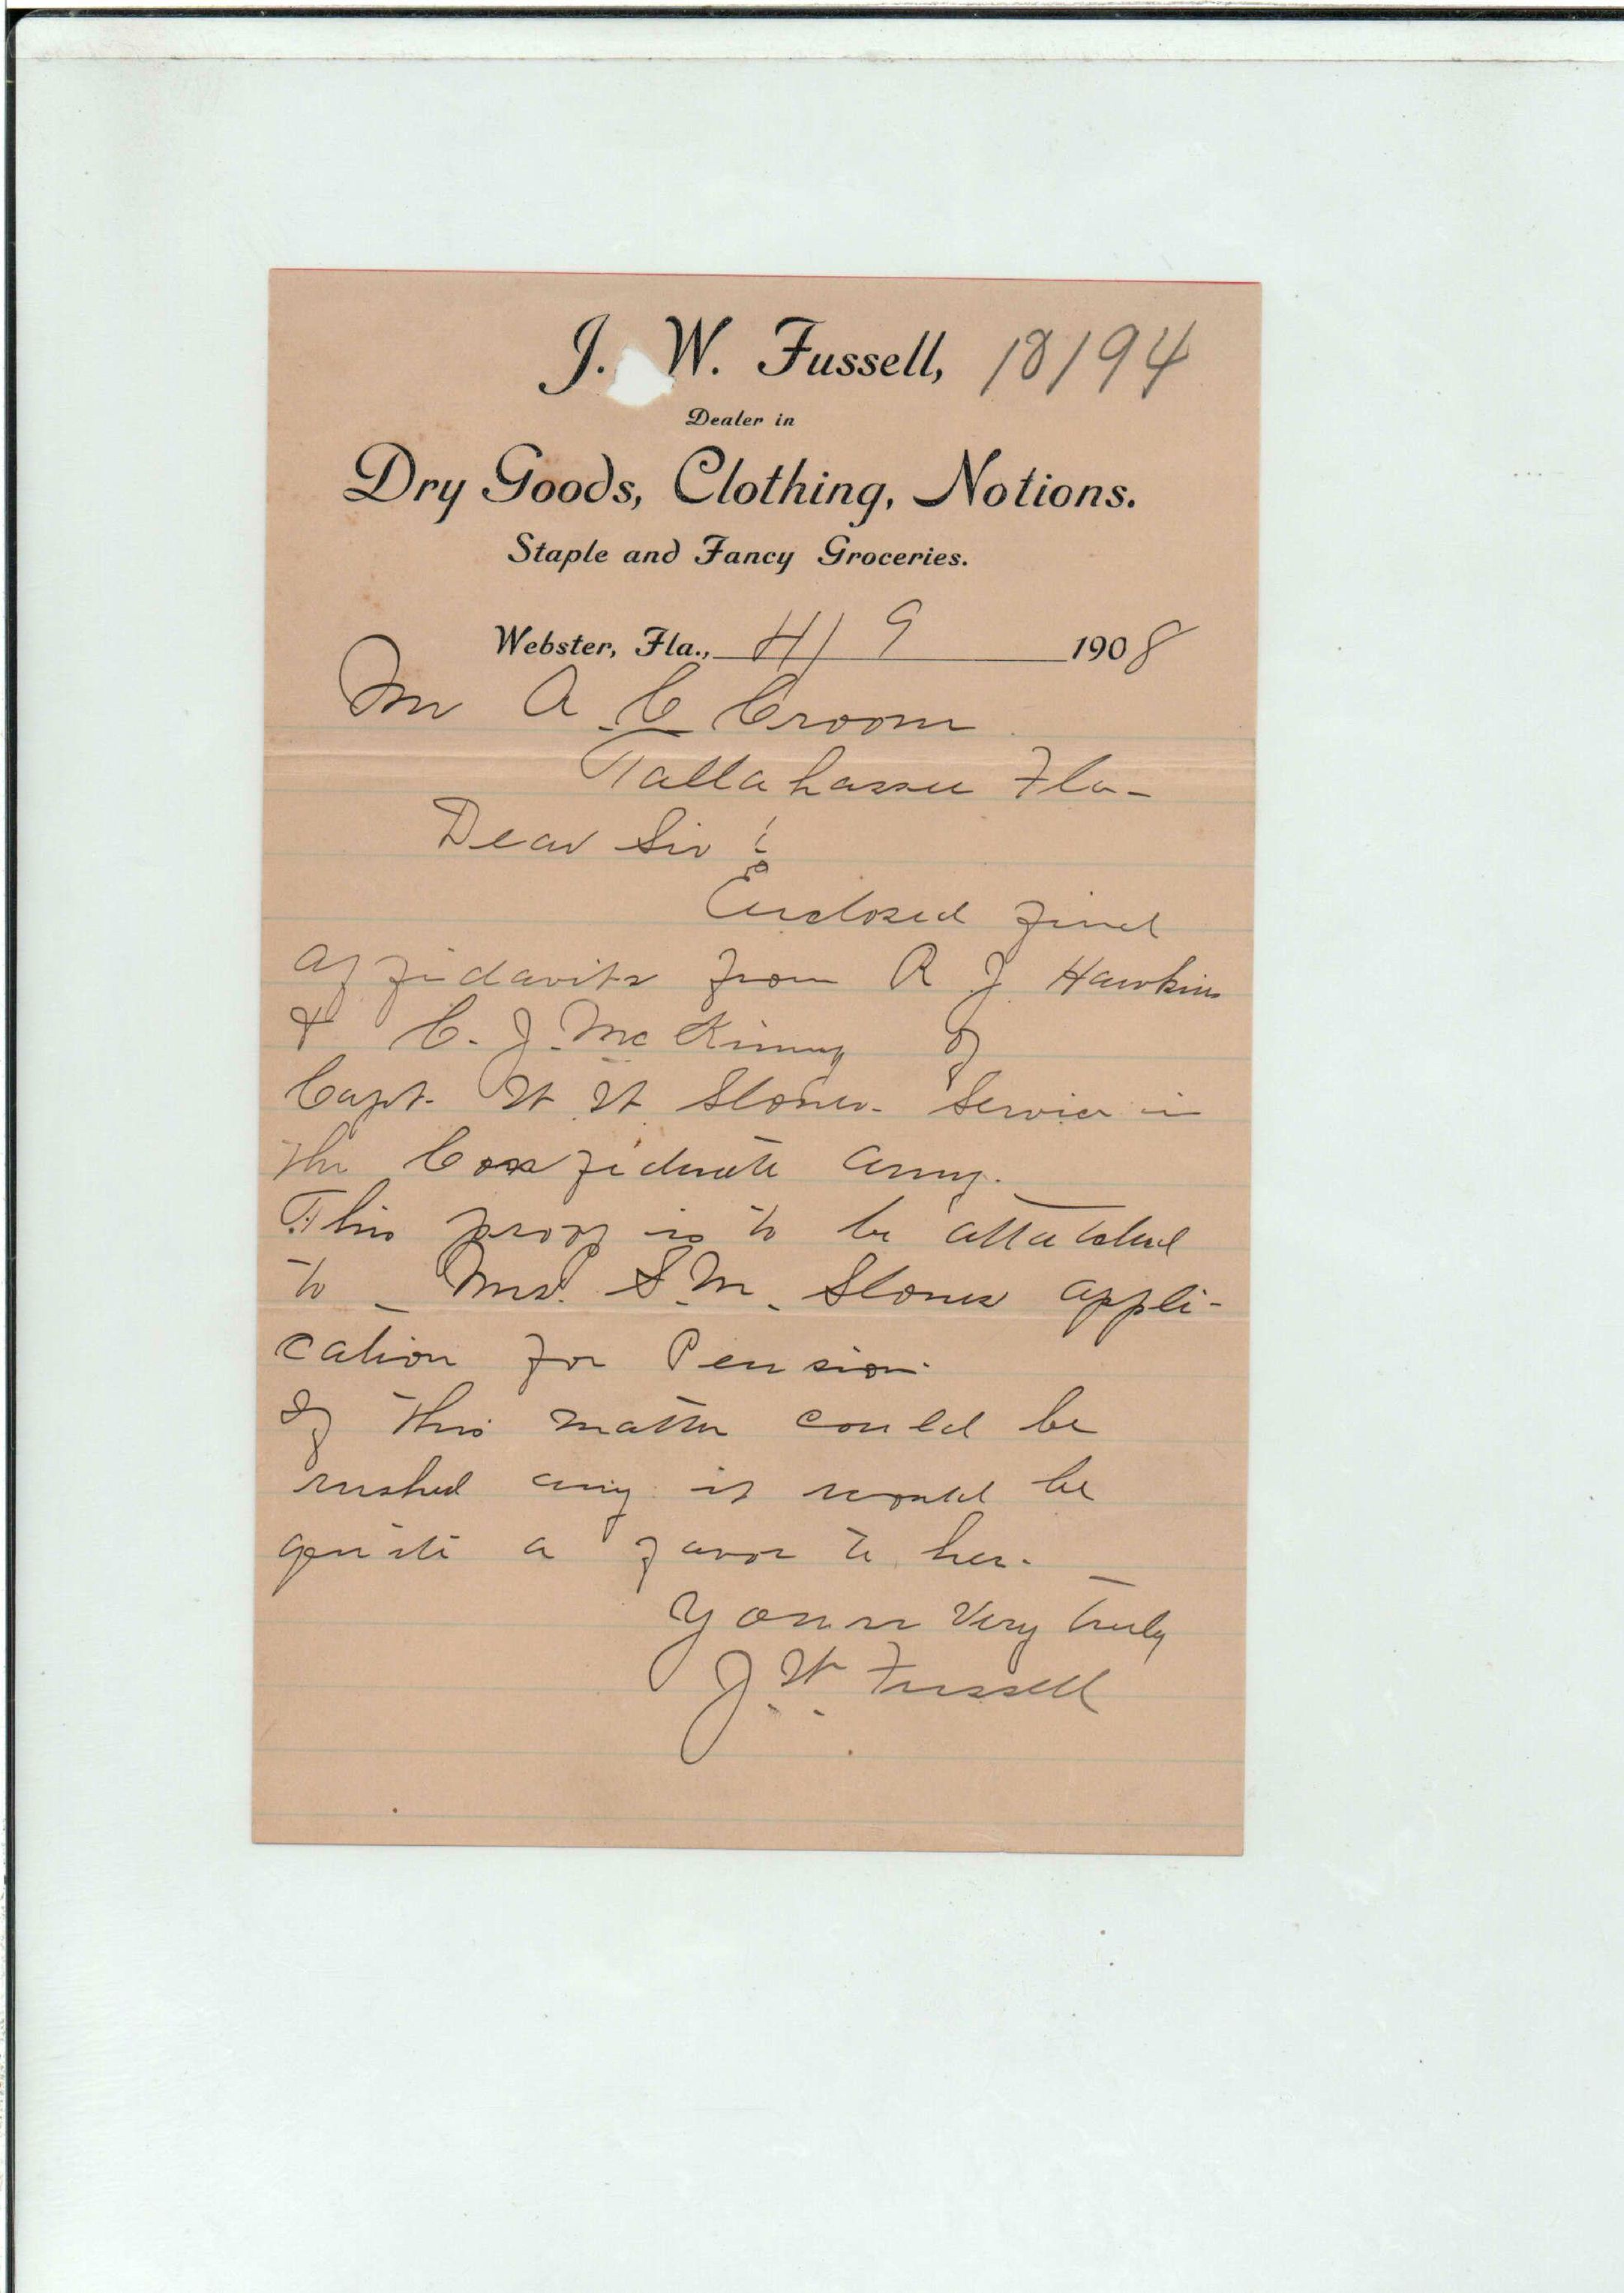 J. W. Fussell, 18194
Dealer in
Dry Goods, Clothing, Notions.
Staple and Fancy Groceries.
Webster, Fla., 4/9 1908
Mr A C Croom
Tallahassee Fla-
Dear Sir:
Enclosed find
affidavits from R J Hawkins
& C. J. McKinny of
Capt. W W Slones Service in
the Confiderate Army.
This proof is to be attatched
to Mrs. S. M. Slones appli-
cation for Pension.
If this matter could be
rushed any it would be
quite a favor to her.
Yours Very truly
J. W. Fussell